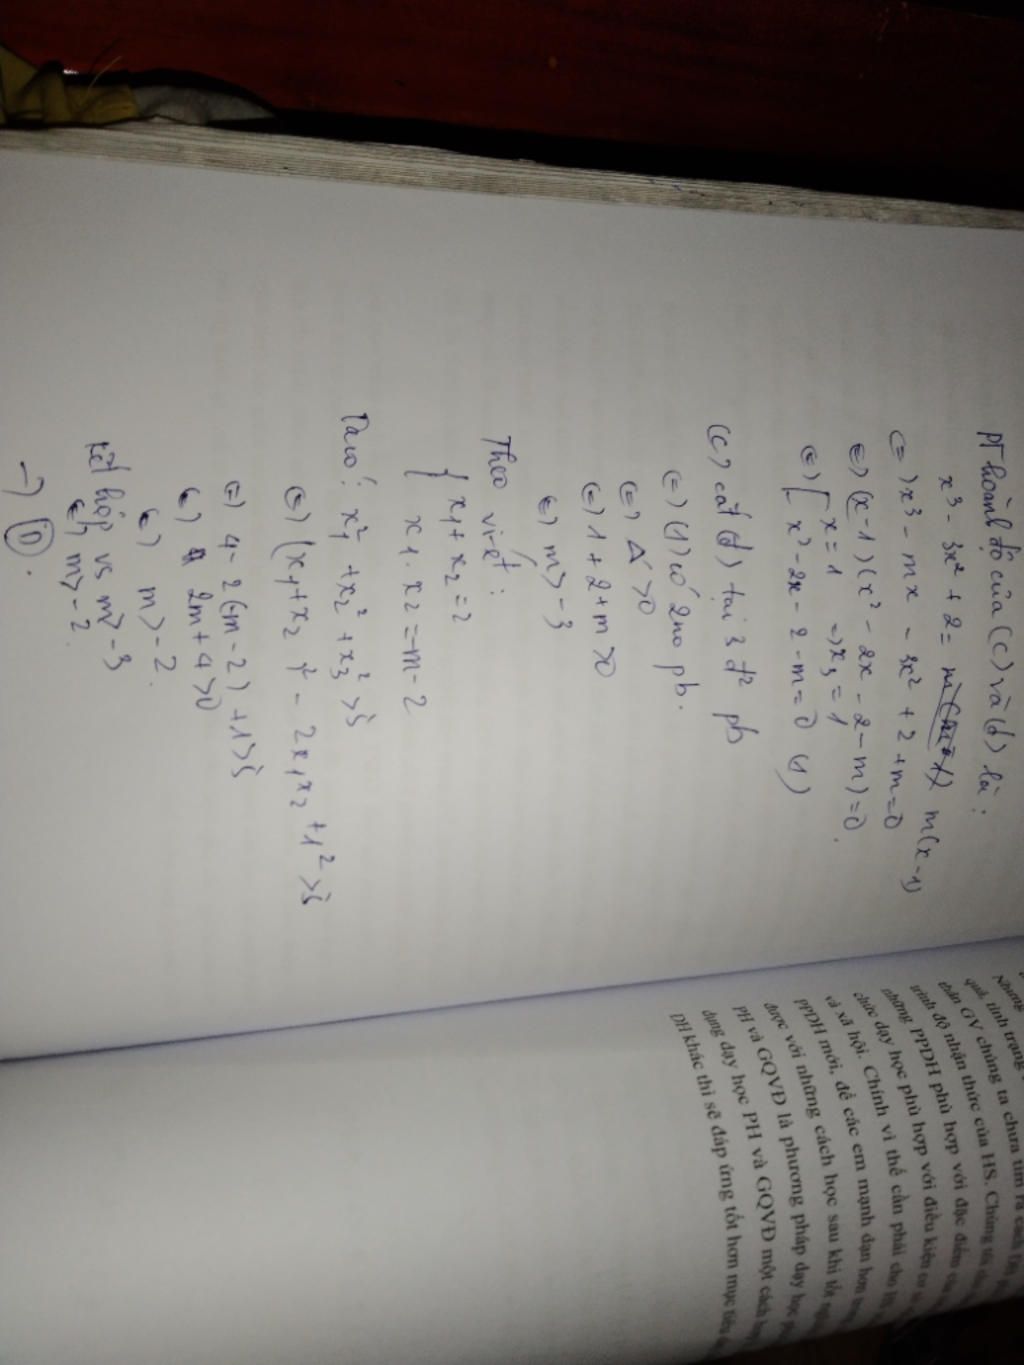 PT hoành độ của (C) và (d) là:
x³ - 3x² + 2 = m(x-1)
(=) x³ - mx - 3x² + 2 + m = 0
(=) (x-1)(x² - 2x - 2 - m) = 0.
(=) [ x = 1 => x₃ = 1
x² - 2x - 2 - m = 0 (1)
(C) cắt (d) tại 3 đ² pb
(=) (1) có 2 no pb.
(=) Δ' > 0
(=) 1 + 2 + m > 0
(=) m > -3
Theo vi-ét:
{ x₁ + x₂ = 2
x₁ . x₂ = -m - 2
Ta có: x₁² + x₂² + x₃² > 5
(=) (x₁ + x₂)² - 2x₁x₂ + 1² > 5
(=) 4 - 2(-m - 2) + 1 > 5
(=) 2m + 4 > 0
(=) m > -2.
Kết hợp vs m > -3
(=) m > -2.
→ D.
Nhưng
quả, tình trạng
thân GV chúng ta chưa tìm ra cách
trình độ nhận thức của HS. Chúng tôi
những PPDH phù hợp với đặc điểm của
chức dạy học phù hợp với điều kiện cơ sở
và xã hội. Chính vì thế cần phải cho
PPDH mới, để các em mạnh dạn hơn
được với những cách học sau khi tốt
PH và GQVĐ là phương pháp dạy học
dụng dạy học PH và GQVĐ một cách
DH khác thì sẽ đáp ứng tốt hơn mục tiêu